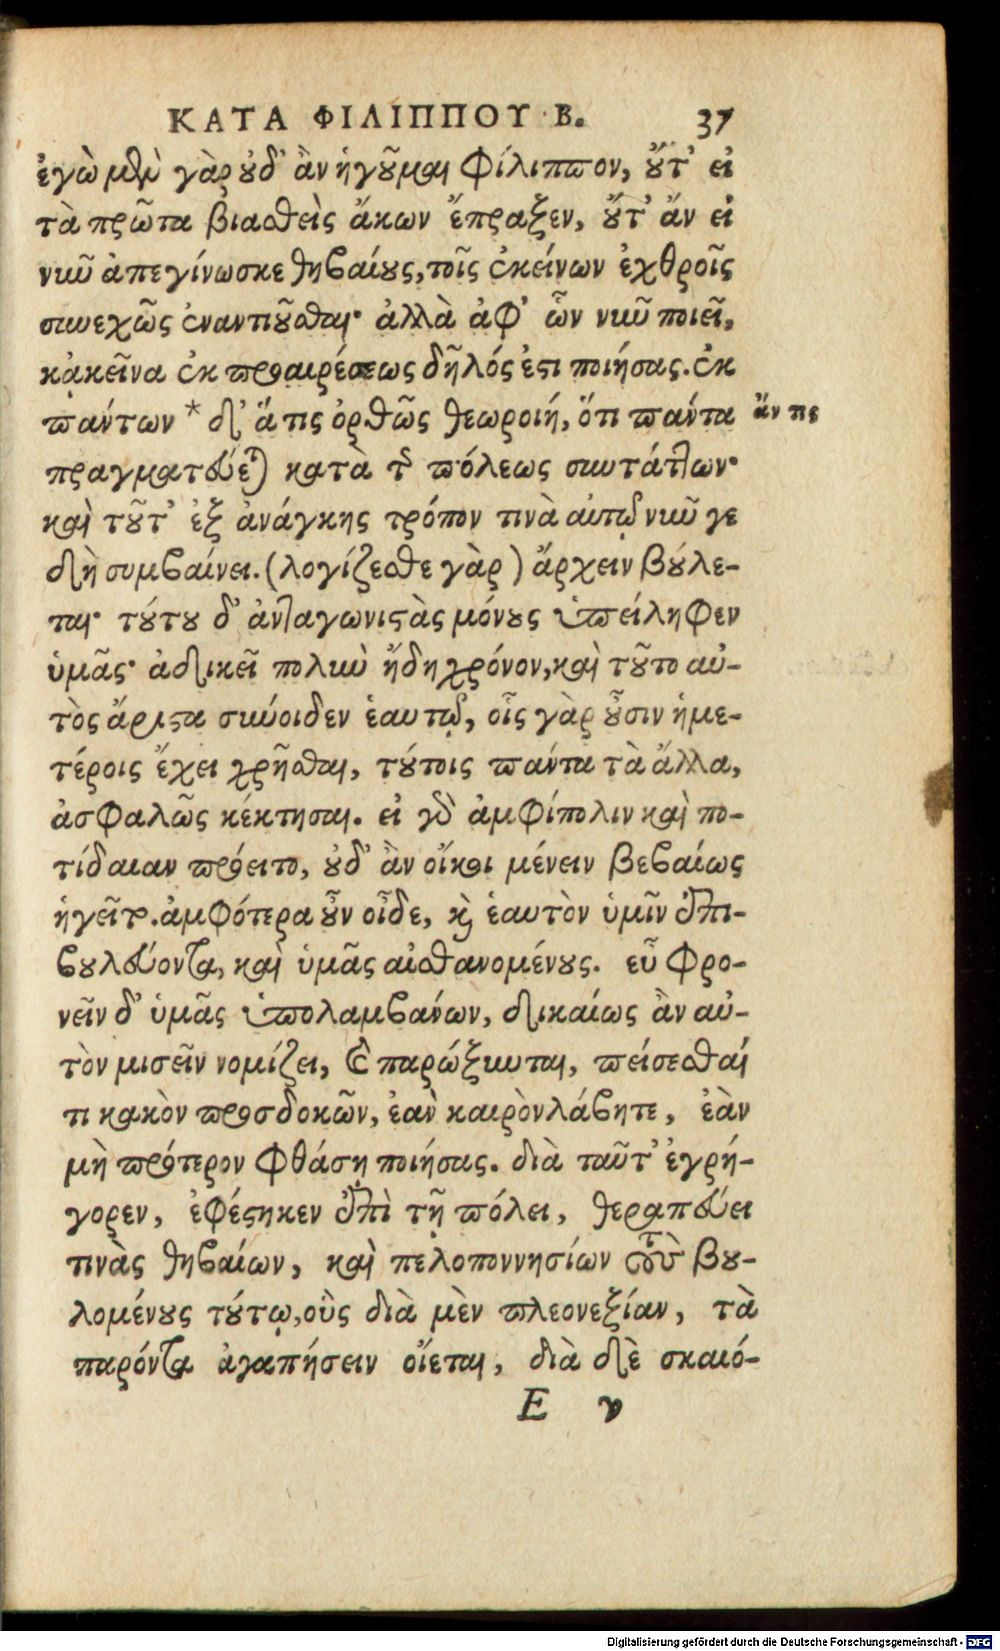 ΚΑΤΑ ΦΙΛΙΠΠΟΥ Β. 37
ἐγὼ μὲν γὰρ οὐδ' ἂν ἡγοῦμαι Φίλιππον, οὔτ' εἰ
τὰ πρῶτα βιασθεὶς ἄκων ἔπραξεν, οὔτ' ἄν εἰ
νιῦ ἀπεγίνωσκε θηβαίους, τοῖς ἐκείνων ἐχθροῖς
συνεχῶς ἐναντιοῦσθαι· ἀλλὰ ἀφ' ὧν νῦν ποιεῖ,
κᾀκεῖνα ἐκ προαιρέσεως δῆλός ἐστι ποιήσας. ἐκ
πάντων * δ' ἄ τις ὀρθῶς θεωροιή, ὅτι πάντα ἄν τις
πραγματεύεται κατὰ τῆς πόλεως συντάττων·
καὶ τοῦτ' ἐξ ἀνάγκης τρόπον τινὰ αὐτῷ νῦν γε
δὴ συμβαίνει. (λογίζεσθε γὰρ) ἄρχειν βούλε-
ται· τούτου δ' ἀνταγωνιστὰς μόνους ὑπείληφεν
ὑμᾶς· ἀδικεῖ πολὺν ἤδη χρόνον, καὶ τοῦτο αὐ-
τὸς ἄριστα σύνοιδεν ἑαυτῷ, οἷς γὰρ οὖσιν ἡμε-
τέροις ἔχει χρῆσθαι, τούτοις πάντα τὰ ἄλλα,
ἀσφαλῶς κέκτησαι. εἰ γὰρ ἀμφίπολιν καὶ πο-
τίδαιαν πρόειτο, οὐδ' ἂν οἴκοι μένειν βεβαίως
ἡγεῖτο. ἀμφότερα οὖν οἶδε, καὶ ἑαυτὸν ὑμῖν ἐπι-
βουλεύοντα, καὶ ὑμᾶς αἰσθανομένους. εὖ φρο-
νεῖν δ' ὑμᾶς ὑπολαμβάνων, δικαίως ἂν αὐ-
τὸν μισεῖν νομίζει, καὶ παρώξυνται, πείσεσθαί
τι κακὸν προσδοκῶν, ἐὰν καιρὸν λάβητε, ἐὰν
μὴ πρότερον φθάσῃ ποιήσας. διὰ ταῦτ' ἐγρή-
γορεν, ἐφέστηκεν ἐπὶ τῇ πόλει, θεραπεύει
τινὰς θηβαίων, καὶ πελοποννησίων τοὺς βου-
λομένους τούτῳ, οὓς διὰ μὲν πλεονεξίαν, τὰ
παρόντα ἀγαπήσειν οἴεται, διὰ δὲ σκαιό-
E v
Digitalisierung gefördert durch die Deutsche Forschungsgemeinschaft - DFG